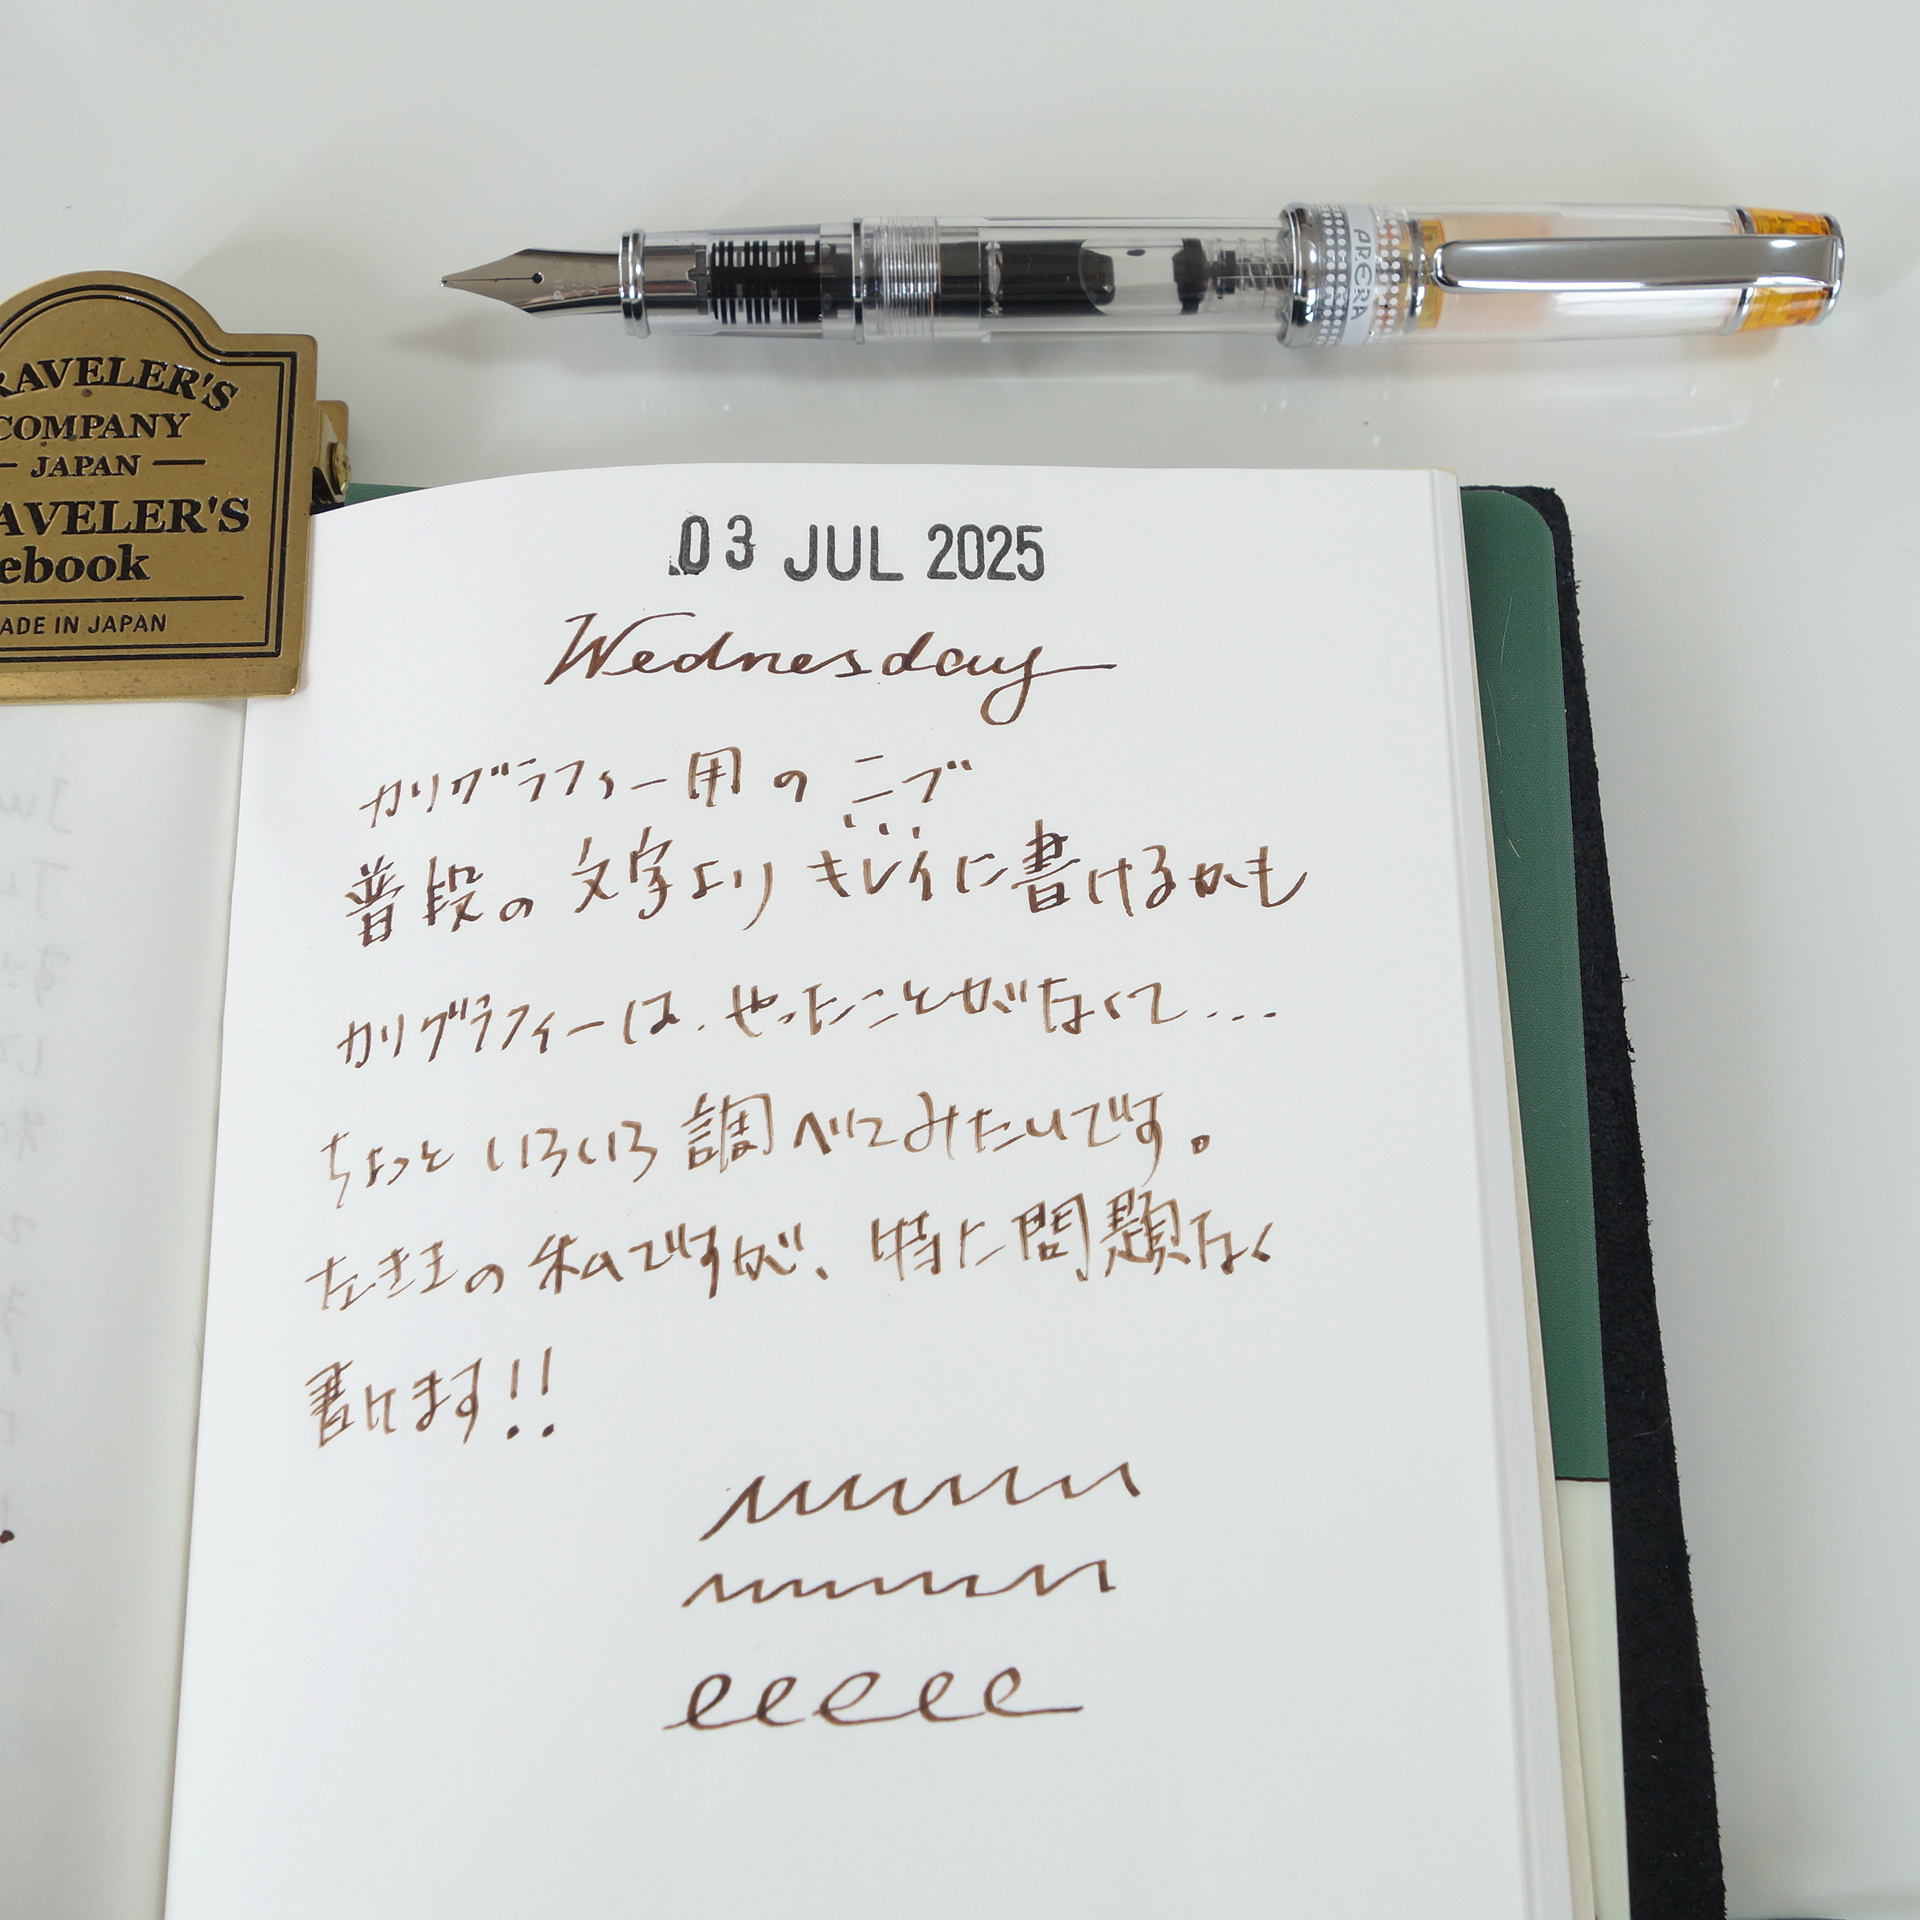 PRERA
TRAVELER'S
COMPANY
JAPAN
TRAVELER'S
ebook
MADE IN JAPAN
03 JUL 2025
Wednesday
カリグラフィー用のニブ
普段の文字よりキレイに書けるかも
カリグラフィーは、やったことがなくて...
ちょっといろいろ調べてみたいです。
左ききの私ですが、特に問題なく
書けます!!
eeeee